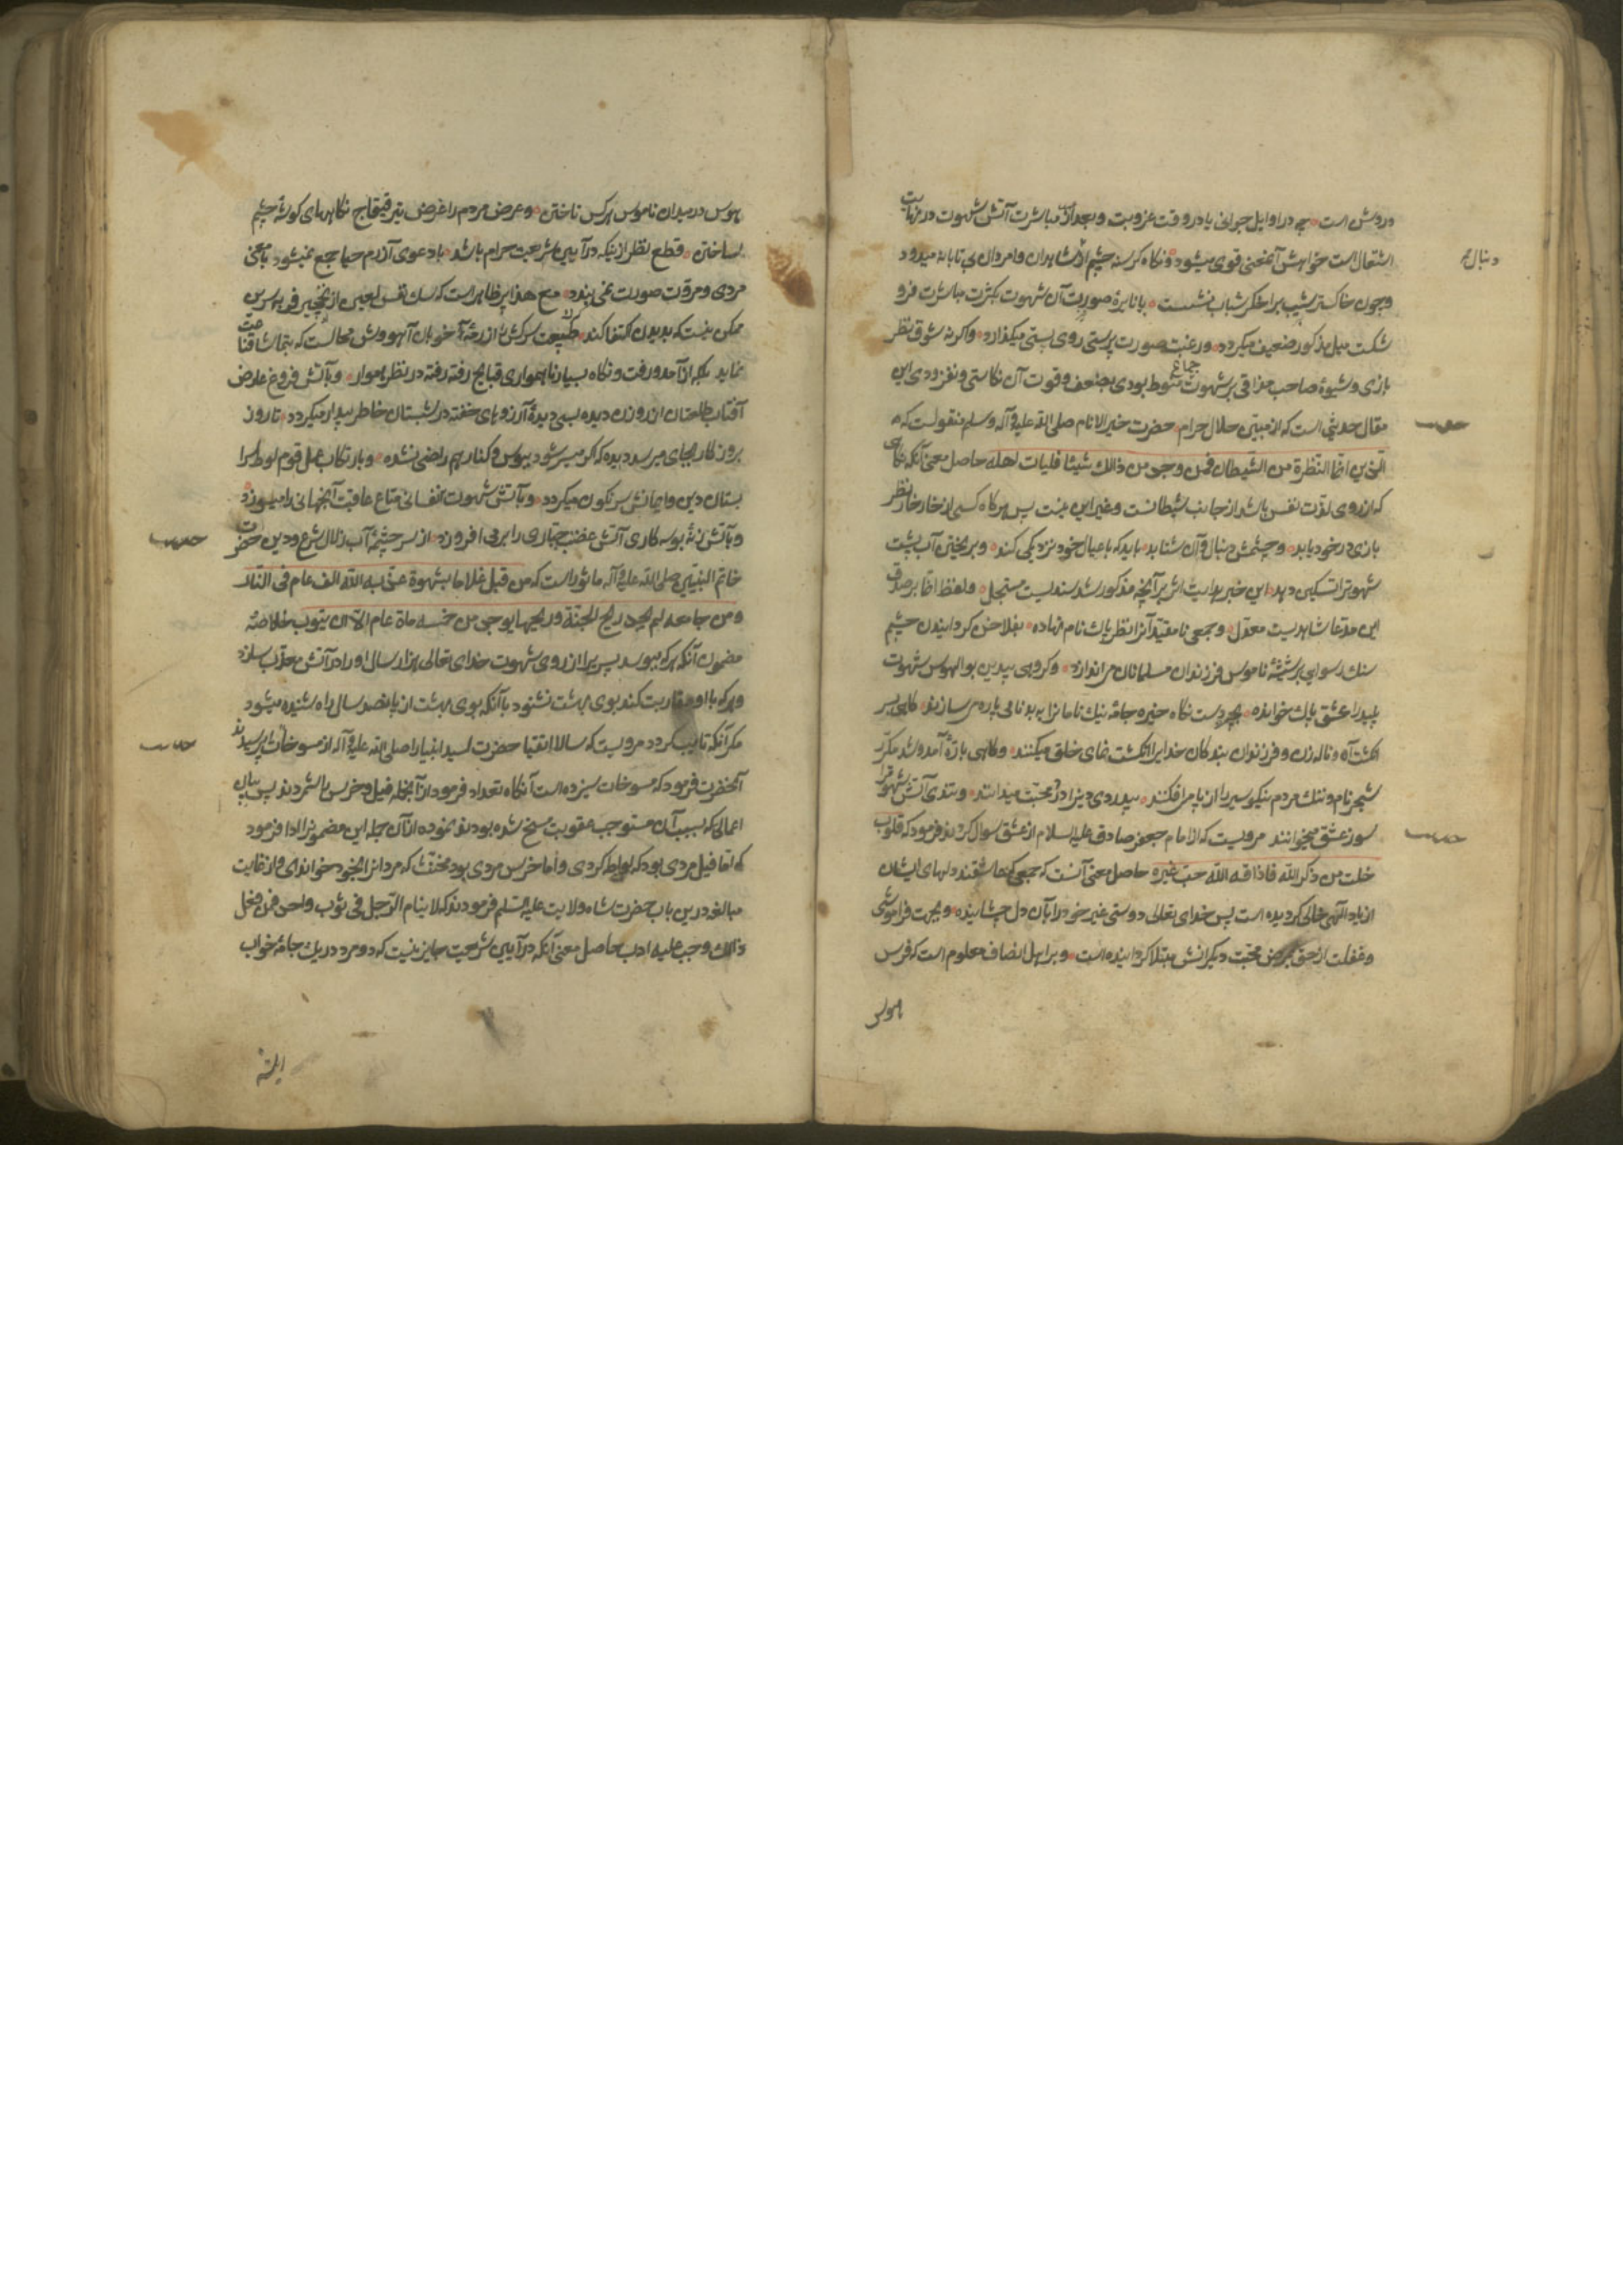 دروش است چه در اوایل جوانی یا در وقت عزوبت و بعد از مباشرت آتش شهوت در نهایت
اشتعال است خواهش آنمعنی قوی میشود و نکاه کرسنه چشم از شاهدان و امردان بی تابانه میدود
دنبال
و چون خاکستر شیب بر اخکر شباب نشست یا نایرهٔ صورت آن شهوت بکثرت مباشرت فرو
شکست میل مذکور ضعیف میکردد و رغبت صورت پرستی روی بپستی میکذارد و اکر نه شوق نظر
بازی و شیوهٔ صاحب مذاقی بر شهوت جماع منوط بودی بضعف و قوت آن نکاستی و نفزودی این
مقال حدیثی است که از مبین حلال حرام حضرت خیر الانام صلی الله علیه وآله وسلم منقولست که
حدیث
انما النظرة من الشیطان فمن وجد من ذالك شیئا فلیات اهله حاصل معنی آنکه نکاهی
که از روی لذت نفس باشد از جانب شیطانست و غیر این نیست پس هرکاه کسی از خار خار نظر
بازی در خود یابد و چشمش دنبال آن شتابد باید که با عیال خود نزدیکی کند و بریختن آب پشت
شهوترا تسکین دهد این خبر هدایت اثر بر آنچه مذکور شد سندیست مسجل و لفظ انما بر صدق
این مدعا شاهدیست معدل و جمعی نامقید آنرا نظر پاك نام نهاده بفلاخن کردانیدن چشم
سنك رسوایی بر شیشهٔ ناموس فرزندان مسلمانان می اندازند و کروهی بیدین بوالهوس شهوت
پلید را عشق پاك خوانده بدست نکاه خیره جامهٔ نیك نامانرا به بدنامی پاره می سازند کاهی بسر
انکشت آه و ناله زن و فرزندان بندکان خدایرا انکشت نمای خلق میکنند و کاهی بارّهٔ آمد و شد مکرّر
شجر نام و ننك مردم نیکو سیر را از پا می افکنند بیدردی دین را درد محبت میدانند و بتندی آتش شهوترا
سوز عشق میخوانند مرویست که از امام جعفر صادق علیه السلام از عشق سوال کردند فرمود که قلوب
حدیث
خلت من ذکر الله فاذاقه الله حب غیره حاصل معنی آنست که جمعی که عاشقند دلهای ایشان
از یاد الهی خالی کردیده است پس خدای تعالی دوستی غیر خود را بآن دل چشانیده و بجهت فراموشی
و غفلت از حق بمرض محبت دیکرانش مبتلا کردانیده است و بر اهل انصاف معلوم است که فرس
هوس
هوس در میدان ناموس هر کس تاختن و عرض مردم را غرض تیر قبقاج نکاههای کوشهٔ چشم
ساختن قطع نظر از اینکه در آیین شریعت حرام باشد با دعوی آزرم حیا جمع نمیشود با معنی
مردی و مروت صورت نمی بندد مع هذا پر ظاهر است که سك نفس لعین از نخجیر فربه سرین
ممکن نیست که بدیدن اکتفا کند طبیعت سرکش را از رمهٔ خوبان آهووش محالست که بتماشا قناعت
نماید بلکه از آمد و رفت و نکاه بسیار ناهمواری قبایح رفته رفته در نظر هموار و بآتش فروغ عارض
آفتاب طلعتان از روزن دیده بسی دیدهٔ آرزوهای خفته در شبستان خاطر بیدار میکردد تا روز
بروز کار بجای میرسد دیده که اکر میسر شود ببوس و کنار هم راضی نشده و بارتکاب عمل قوم لوط سرا
بستان دین و ایمانش سرنکون میکردد و بآتش شهوت نفسانی متاع عاقبت آنجهانی را میسوزد
و بآتش زنهٔ بوسه کاری آتش غضب جباری را بر می افروزد از سر چشمهٔ آب زلال شرع و دین حضرت
حدیث
خاتم النبیین صلی الله علیه وآله ماثور است که من قبل غلاما بشهوة عذبه الله الف عام فی النار
ومن جامعه لم یجد ریح الجنة وریحها یوجد من خمسه مأة عام الا ان یتوب خلاصهٔ
مضمون آنکه هرکه ببوسد پسریرا از روی شهوت خدای تعالی هزار سال او را در آتش معذب سازد
و هرکه با او مقاربت کند بوی بهشت نشنود با آنکه بوی بهشت از پانصد سال راه شنیده میشود
مکر آنکه تایب کردد مرویست که سالار اتقیا حضرت سید انبیا را صلی الله علیه وآله از مسوخات پرسیدند
حدیث
آنحضرت فرمود که مسوخات سیزده است آنکاه تعداد فرمود از آنجمله فیل و خرس را شمردند پس بیان
اعمالی که بسبب آن مستوجب عقوبت مسخ شده بودند نموده از آن جمله این مضمونرا ادا فرمود
که اما فیل مردی بود که لواطه کردی و اما خرس مردی بود مخنث که مردانرا بخود خواندی و از غایت
مبالغه درین باب حضرت شاه ولایت علیه السلم فرمودند که لا ینام الرجل فی ثوب واحد فمن فعل
ذالك وجب علیه ادب حاصل معنی آنکه در آیین شریعت جایز نیست که دو مرد در یك جامهٔ خواب